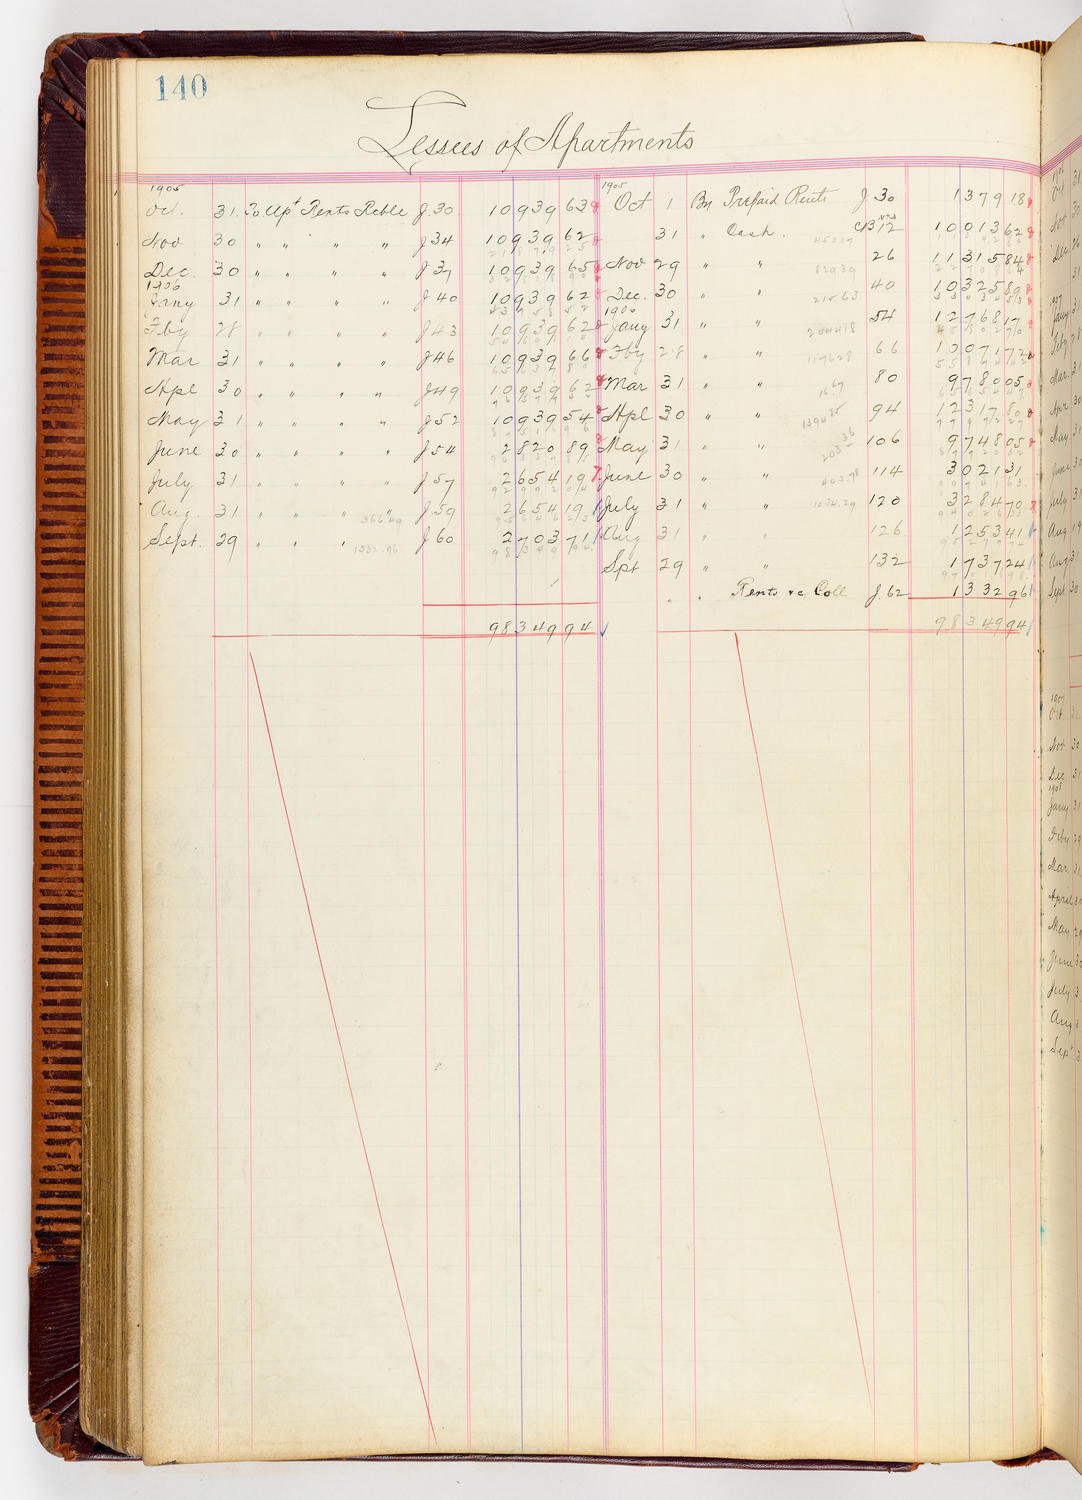 140
Lessees of Apartments
1905
Oct. 31 To Apt Rents Rcble J. 30 10939 63
Nov 30 " " " " J 34 10939 62
Dec. 30 " " " " J 37 10939 65
1906
Jany 31 " " " " J 40 10939 62
Fby 28 " " " " J 43 10939 62
Mar 31 " " " " J 46 10939 66
Apl 30 " " " " J 49 10939 62
May 31 " " " " J 52 10939 54
June 30 " " " " J 54 2820 89
July 31 " " " " J 57 2654 19
Aug. 31 " " " " J 59 2654 19
Sept. 29 " " " 1332.96 J 60 2703 71
98349 94
1905
Oct 1 By Prepaid Rents J 30 1379 18
31 " Cash. CB 12 10013 62
Nov 29 " " 82939 26 11315 84
Dec. 30 " " 21563 40 10325 89
1906
Jany 31 " " 204418 54 12768 17
Fby 28 " " 117628 66 10071 72
Mar 31 " " 80 9780 05
Apl 30 " " 94 12317 80
May 31 " " 106 9748 05
June 30 " " 403.78 114 3021 31
July 31 " " 1034.29 120 3284 70
Aug 31 " " 126 1253 41
Spt 29 " " 132 1737 24
" " Rents &c Coll J. 62 1332 96
98349 94